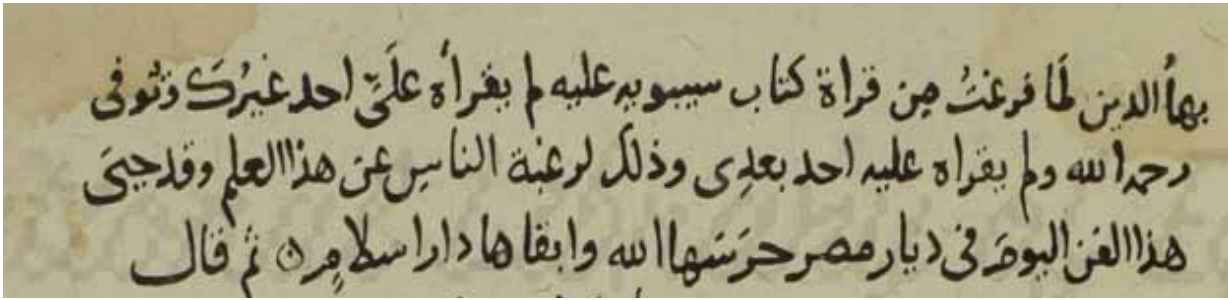 بهأ الدين لما فرغتُ مِن قراة كتاب سيبويه عليه لم يقرأه علَىّ احد غيرُك وتوفى
رحمه الله ولم يقراه عليه احد بعدِى وذلك لرغبة الناسِ عن هذا العلم وقد حيىَ
هذا الفن اليومَ فى ديار مصر حرَسَها الله وابقاها دار اسلامٍ ن ثم قال